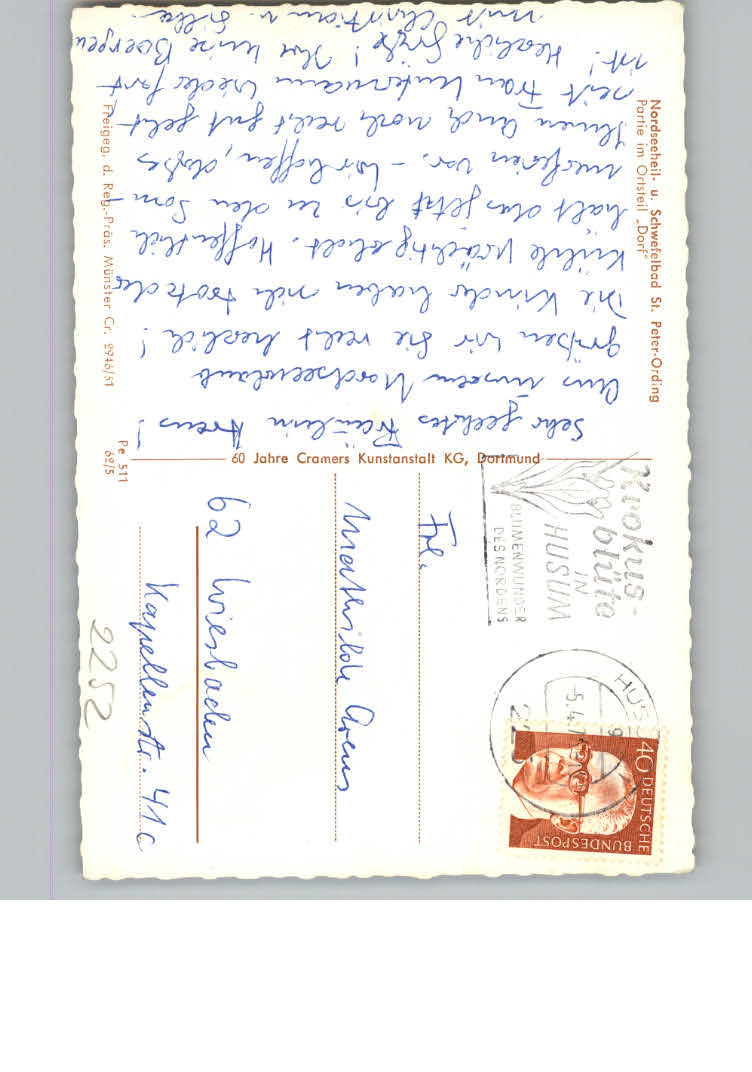 Nordseeheil- u. Schwefelbad St. Peter-Ording
Partie im Ortsteil „Dorf"
Sehr geehrtes Fräulein Arens!
Aus unserm Nordseeurlaub
grüßen wir Sie recht herzlich!
Die Kinder haben sich trotz der
Kühle prächtig erholt. Hoffentlich
hält das jetzt bis zu den Som-
merferien vor. – Wir hoffen, daß es
Ihnen auch noch recht gut geht
seit Frau wieder fort
ist! Herzliche Grüße! Ihre Luise Boergen
mit Christian u. Silke.
Freigeg. d. Reg.-Präs. Münster Cr. 2946/51
60 Jahre Cramers Kunstanstalt KG, Dortmund
Pe 511
62/5
Krokus-
blüte
IN
HUSUM
BLUMENWUNDER
DES NORDENS
HUS
-5.4.7
225
40 DEUTSCHE
BUNDESPOST
Frl.
Mathilde Arens
62 Wiesbaden
Kapellenstr. 41c
2252